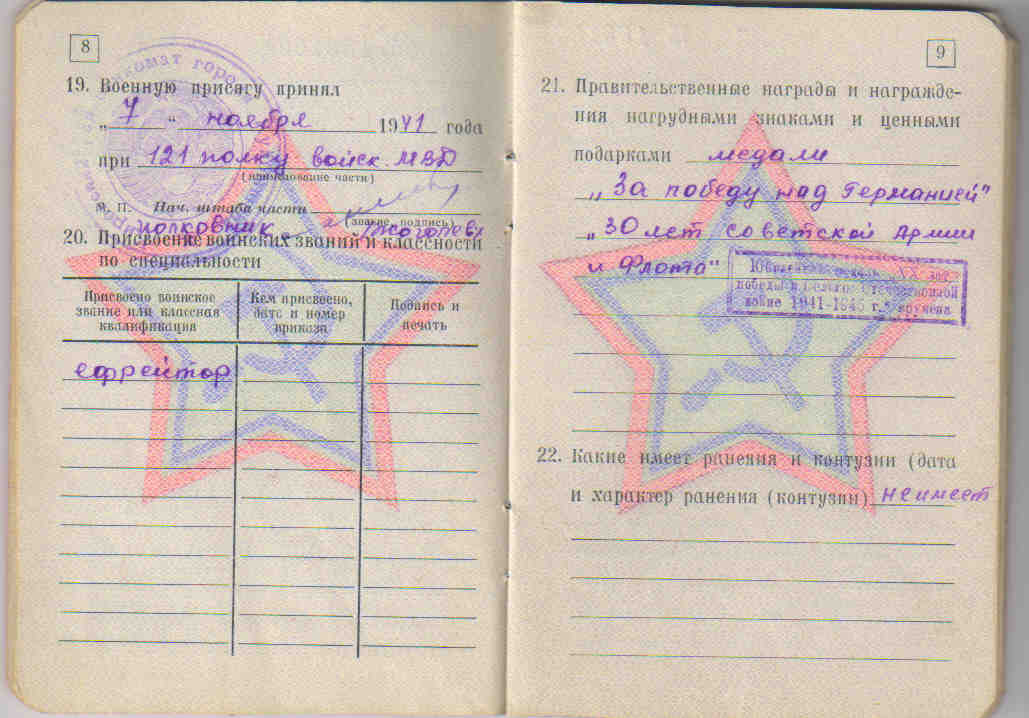 8
19. Военную присягу принял
„ 7 “ ноября 1941 года
при 121 полку войск МВД
(наименование части)
М. П. Нач. штаба части
(звание, подпись)
полковник
20. Присвоение воинских званий и классности
по специальности
Присвоено воинское
звание или классная
квалификация
Кем присвоено,
дата и номер
приказа
Подпись и
печать
ефрейтор
9
21. Правительственные награды и награжде-
ния нагрудными знаками и ценными
подарками медали
„За победу над Германией"
„30 лет советской Армии
и Флота"
Юбилейная медаль „XX лет
победы в Великой Отечественной
войне 1941-1945 г." вручена
22. Какие имеет ранения и контузии (дата
и характер ранения (контузии) не имеет